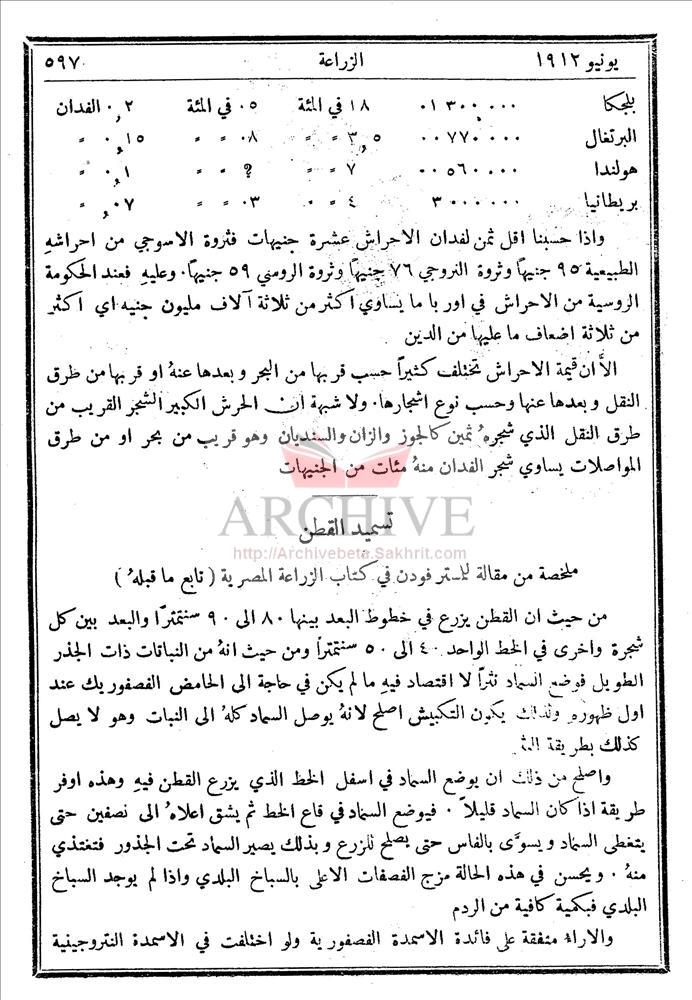 يونيو ١٩١٢ الزراعة ٥٩٧
بلجكا ٠١٣٠٠٠٠٠ ١٨ في المئة ٠٥ في المئة ٠,٢ الفدان
البرتغال ٠٠٧٧٠٠٠٠ ٣,٥ = = ٠٨ = = ٠,١٥ =
هولندا ٠٠٥٦٠٠٠٠ ٧ = = ؟ = = ٠,١ =
بريطانيا ٣٠٠٠٠٠٠ ٤ = = ٠٣ = = ٠,٠٧ =
واذا حسبنا اقل ثمن لفدان الاحراش عشرة جنيهات فثروة الاسوجي من احراشهِ
الطبيعية ٩٥ جنيهاً وثروة النروجي ٧٦ جنيهاً وثروة الروسي ٥٩ جنيهاً. وعليهِ فعند الحكومة
الروسية من الاحراش في اوربا ما يساوي اكثر من ثلاثة آلاف مليون جنيه اي اكثر
من ثلاثة اضعاف ما عليها من الدين
الاَّ ان قيمة الاحراش تختلف كثيراً حسب قربها من البحر وبعدها عنهُ او قربها من طرق
النقل وبعدها عنها وحسب نوع اشجارها. ولا شبهة ان الحرش الكبير الشجر القريب من
طرق النقل الذي شجرهُ ثمين كالجوز والزان والسنديان وهو قريب من بحر او من طرق
المواصلات يساوي شجر الفدان منهُ مئات من الجنيهات
ARCHIVE
تسميد القطن
http://Archivebeta.Sakhrit.com
ملخصة من مقالة للمستر فودن في كتاب الزراعة المصرية ( تابع ما قبلهُ )
من حيث ان القطن يزرع في خطوط البعد بينها ٨٠ الى ٩٠ سنتمترًا والبعد بين كل
شجرة واخرى في الخط الواحد ٤٠ الى ٥٠ سنتمتراً ومن حيث انهُ من النباتات ذات الجذر
الطويل فوضع السماد نثراً لا اقتصاد فيهِ ما لم يكن في حاجة الى الحامض الفصفوريك عند
اول ظهوره ولذلك يكون التكبيش اصلح لانهُ يوصل السماد كلهُ الى النبات وهو لا يصل
كذلك بطريقة النثر
واصلح من ذلك ان يوضع السماد في اسفل الخط الذي يزرع القطن فيهِ وهذه اوفر
طريقة اذا كان السماد قليلاً. فيوضع السماد في قاع الخط ثم يشق اعلاهُ الى نصفين حتى
يتغطى السماد ويسوَّى بالفاس حتى يصلح للزرع وبذلك يصير السماد تحت الجذور فتغتذي
منهُ. ويحسن في هذه الحالة مزج الفصفات الاعلى بالسباخ البلدي واذا لم يوجد السباخ
البلدي فبكمية كافية من الردم
والاراء متفقة على فائدة الاسمدة الفصفورية ولو اختلفت في الاسمدة النتروجينية